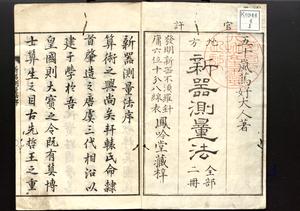 官許
五十嵐篤好大人著
地方新器測量法 全部二冊
發明新器不須羅針
庸六位十分八線表
鳳吟堂藏梓
新器測量法序
算術之興尚矣軒轅氏命隷
首肇造之唐虞三代相沿以
建于學於吾
皇國則大寶之令既有算博
士算生之目古先哲王之重